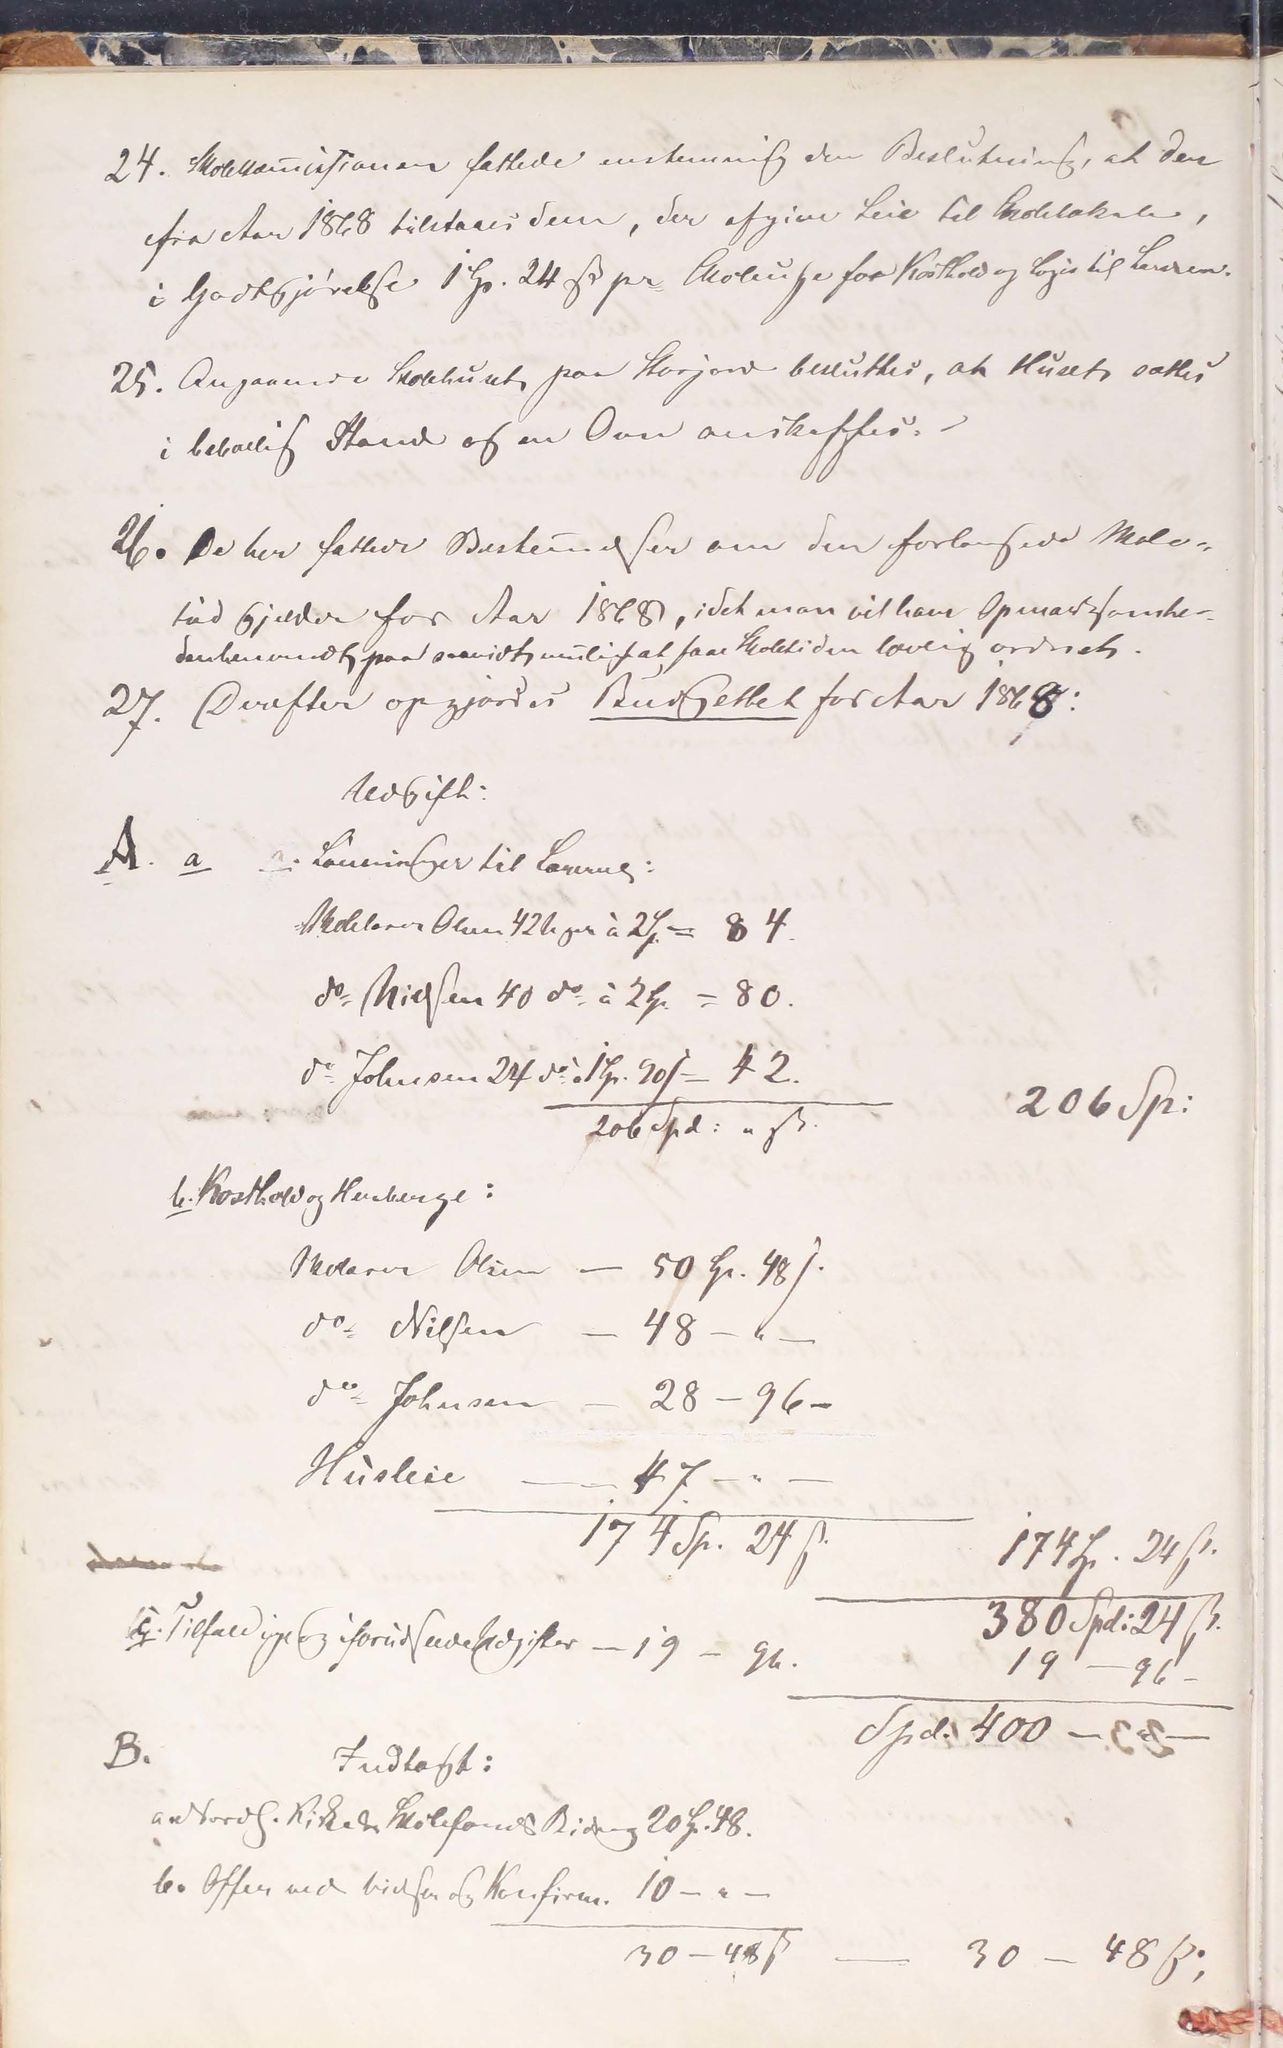 24. Skolekommissionen fattede enstemmig den Beslutning, at der
fra Aar 1868 tilstaaes dem, der afgive Leie til Skolelokale,
i Godtgjørelse 1 Sp. 24 ß pr. Skoleuge for Kosthold og Logis til Læreren.
25. Angaaende Skolehuset paa Storjord besluttes, at Huset sættes
i beboelig Stand og en Ovn anskaffes. -
26. De her fattede Bestemmelser om den forlængede Skole-
tid gjælder for Aar 1868, idet man vil have Opmærksomhe-
den henvendt paa saavidt mulig at faae Skoletiden lovlig ordnet.
27. Derefter opgjordes Budgettet for Aar 1868:
Udgift:
A. a Lønninger til Lærerne:
Skolelærer Olsen 42 U pr à 2 Sp. = 84.
do Nielsen 40 do à 2 Sp. = 80.
do Johnsen 24 do à 1 Sp. 90 ß = 42.
206 Spd: " ß. 206 Sp:
b. Kosthold og Herberge:
Skolelærer Olsen — 50 Sp. 48 ß.
do Nilsen — 48 — " —
do Johnsen — 28 — 96 —
Husleie — 47 — " —
174 Sp. 24 ß. 174 Sp. 24 ß.
380 Spd: 24 ß.
c. Tilfældige og uforudseede Udgifter — 19 — 96. 19 — 96 —
Spd. 400 —
B. Indtægt:
Kirkes Skolefonds Bidrag 20 Sp. 48.
b. Offer ved Vielser og Konfirm. 10 — " —
30 — 48 ß — 30 — 48 ß;